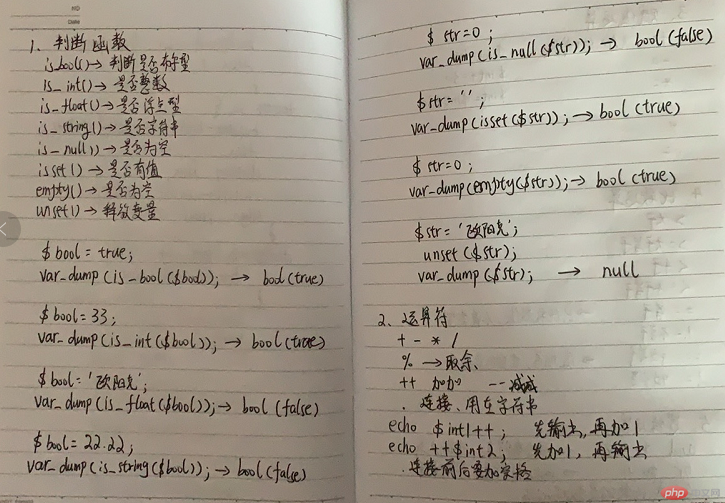 NO
Date
1、判断函数
is_bool()→判断是否布尔型
is_int()→是否整数
is_float()→是否浮点型
is_string()→是否字符串
is_null()→是否为空
isset()→是否有值
empty()→是否为空
unset()→释放变量
$bool = true;
var_dump(is_bool($bool)); → bool(true)
$bool = 33;
var_dump(is_int($bool)); → bool(true)
$bool = '欧阳克';
var_dump(is_float($bool)); → bool(false)
$bool = 22.22;
var_dump(is_string($bool)); → bool(false)
$str = 0;
var_dump(is_null($str)); → bool(false)
$str = '';
var_dump(isset($str)); → bool(true)
$str = 0;
var_dump(empty($str)); → bool(true)
$str = '欧阳克';
unset($str);
var_dump($str); → null
2、运算符
+ - * /
% → 取余、
++ 加加 -- 减减
. 连接、用在字符串
echo $int1++; 先输出,再加1
echo ++$int2; 先加1,再输出
.连接前后要加空格
php